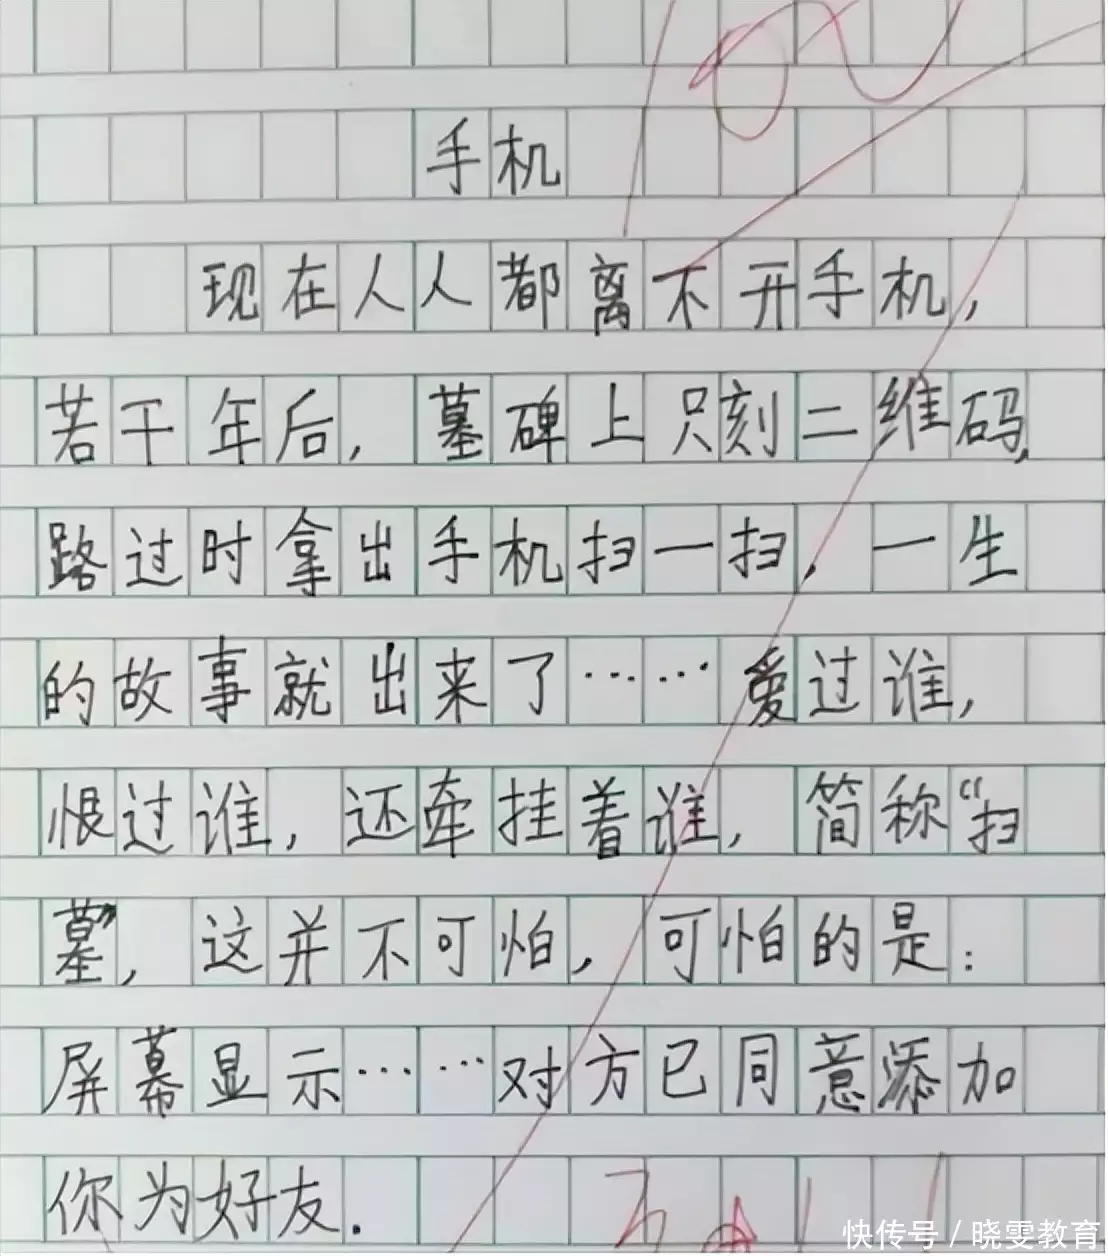 手机
现在人人都离不开手机，
若干年后，墓碑上只刻二维码，
路过时拿出手机扫一扫，一生
的故事就出来了……爱过谁，
恨过谁，还牵挂着谁，简称“扫
墓”，这并不可怕，可怕的是：
屏幕显示……对方已同意添加
你为好友.
快传号/晓雯教育